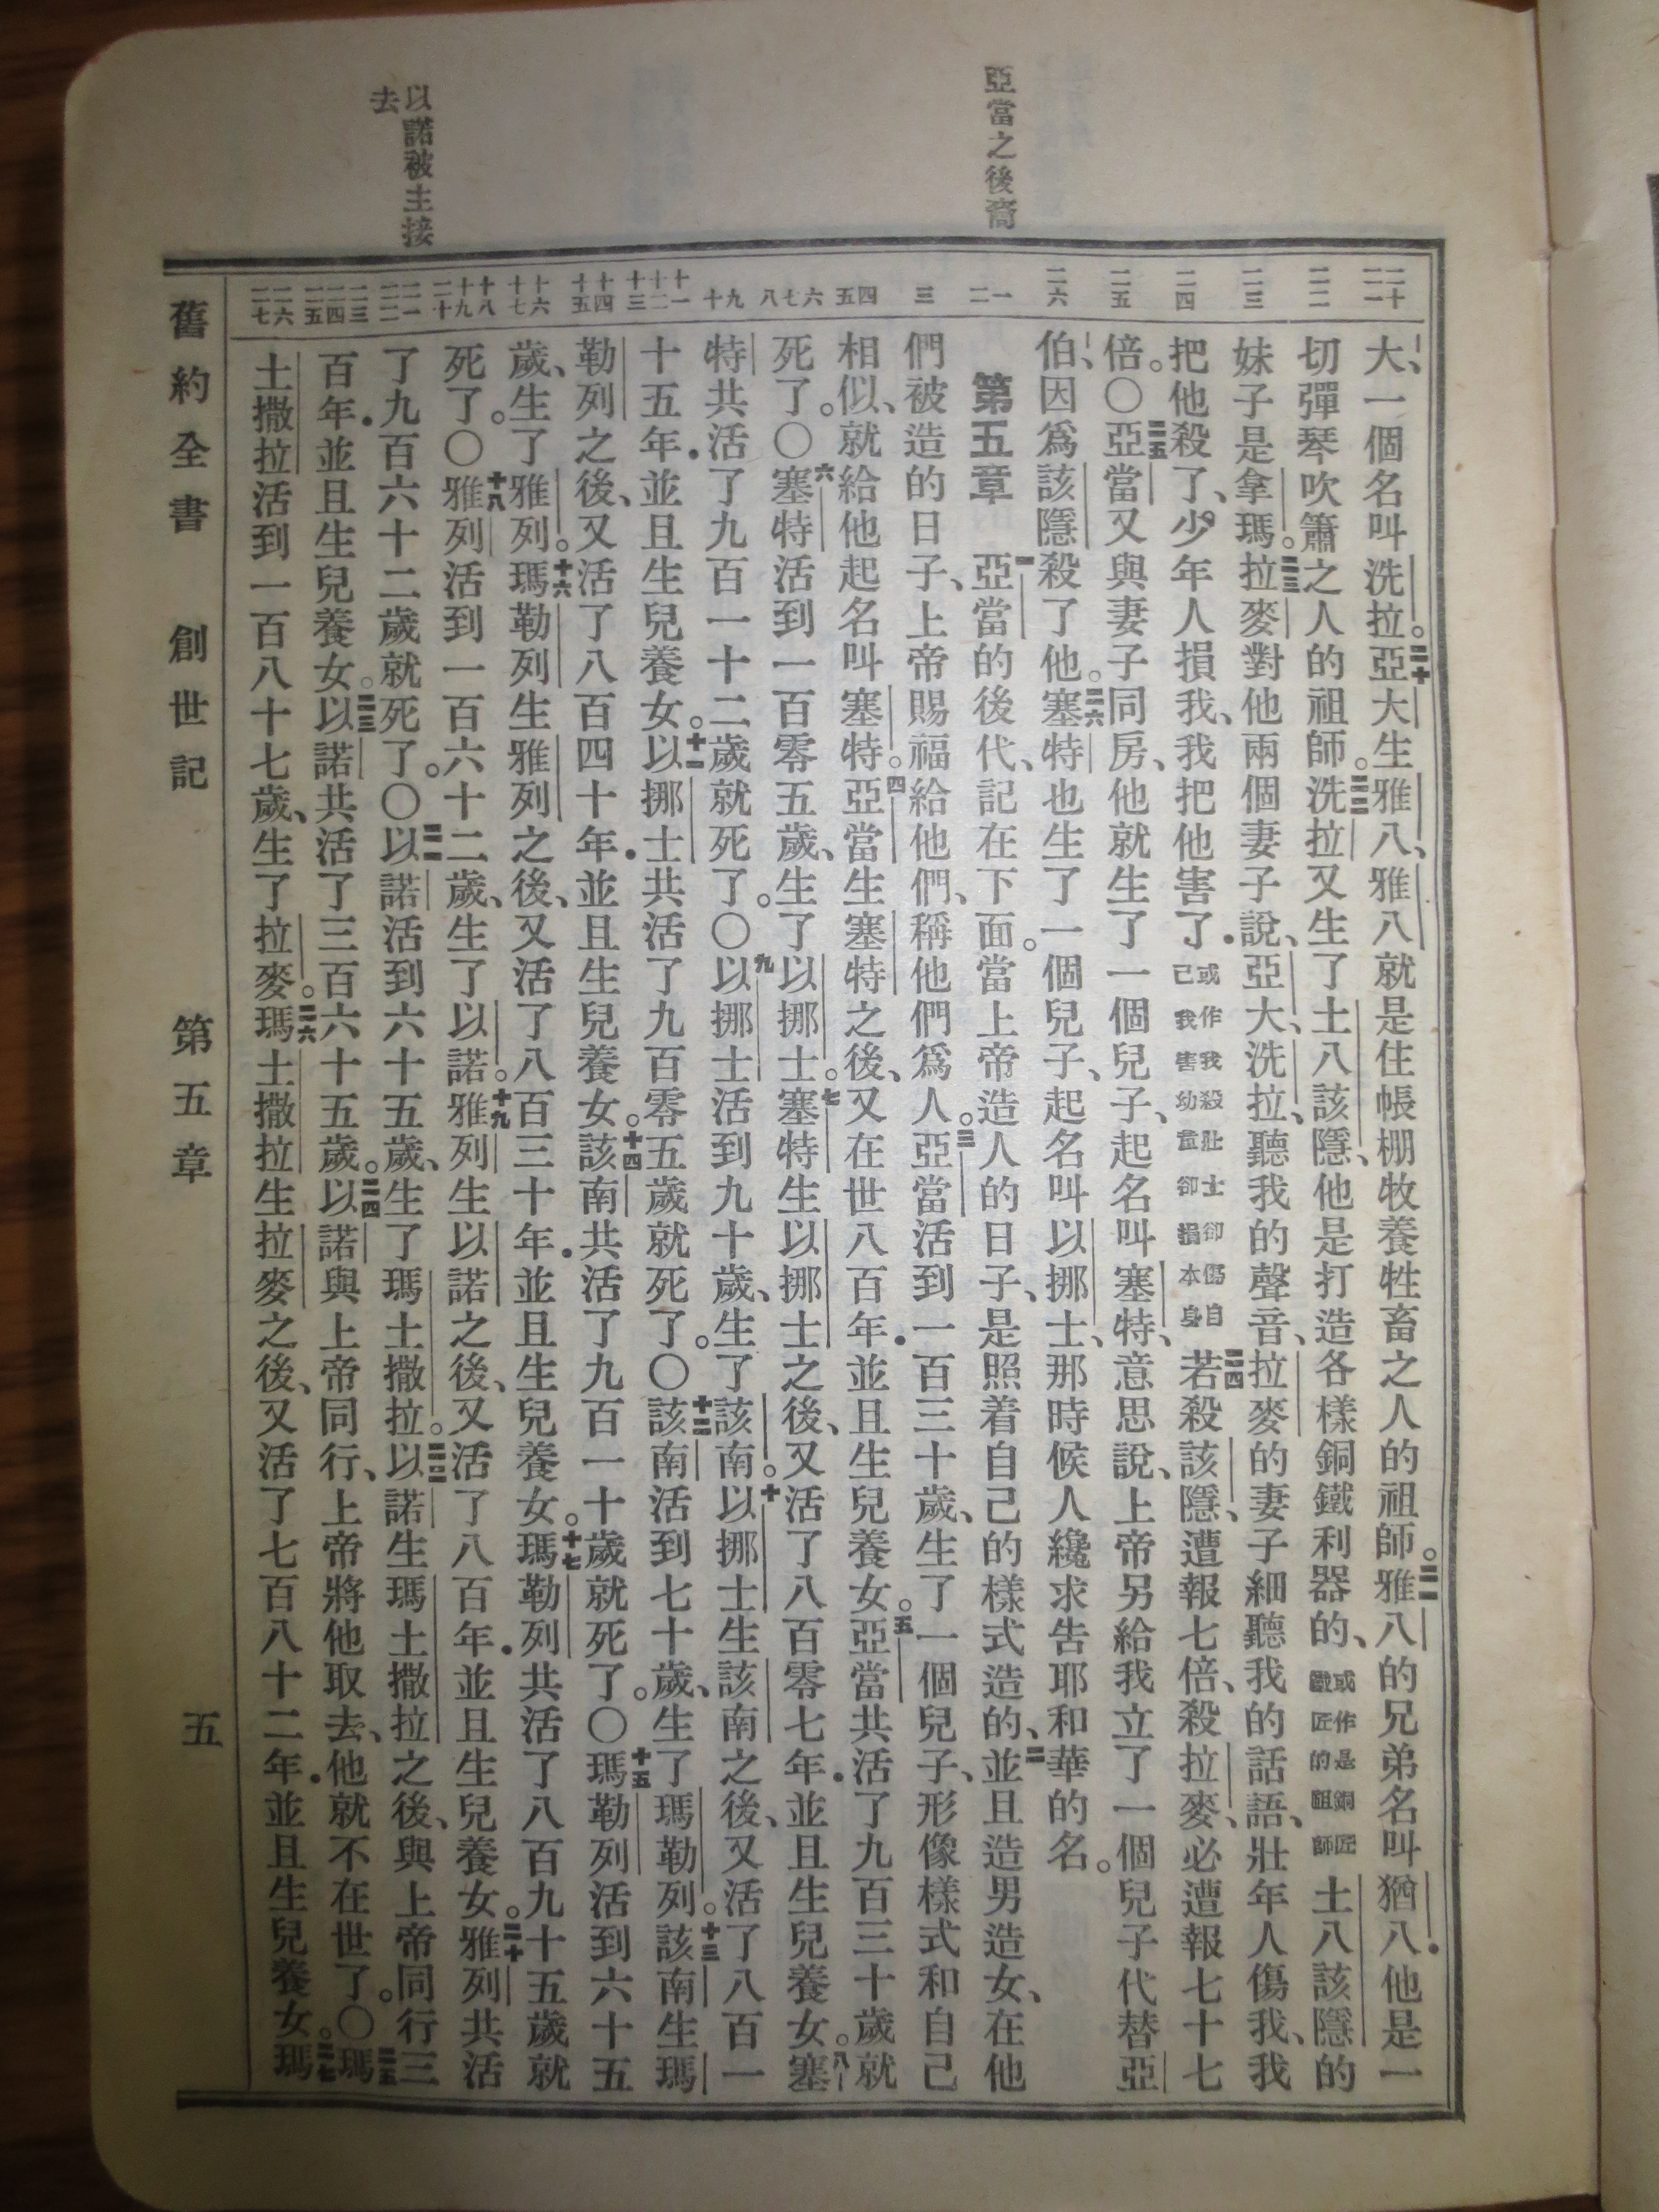 亞當之後裔
以諾被主接
去
二十 二一
二二
二三
二四
二五
二六
一 二
三
四 五
六 七 八
九 十
十一 十二 十三
十四 十五
十六 十七
十八 十九 二十
二一 二二
二三 二四 二五
二六 二七
大、一個名叫洗拉。二十亞大生雅八、雅八就是住帳棚牧養牲畜之人的祖師。二一雅八的兄弟名叫猶八．他是一
切彈琴吹簫之人的祖師。二二洗拉又生了土八該隱、他是打造各樣銅鐵利器的、或作是銅匠鐵匠的祖師土八該隱的
妹子是拿瑪。二三拉麥對他兩個妻子說、亞大、洗拉、聽我的聲音、拉麥的妻子細聽我的話語、壯年人傷我、我
把他殺了、少年人損我、我把他害了．或作我殺壯士卻傷自己我害幼童卻損本身二四若殺該隱、遭報七倍、殺拉麥、必遭報七十七
倍。〇二五亞當又與妻子同房、他就生了一個兒子、起名叫塞特、意思說、上帝另給我立了一個兒子代替亞
伯、因爲該隱殺了他。二六塞特也生了一個兒子、起名叫以挪士、那時候人纔求告耶和華的名。
第五章 一亞當的後代、記在下面。當上帝造人的日子、是照着自己的樣式造的、二並且造男造女、在他
們被造的日子、上帝賜福給他們、稱他們爲人。三亞當活到一百三十歲、生了一個兒子、形像樣式和自己
相似、就給他起名叫塞特。四亞當生塞特之後、又在世八百年．並且生兒養女。五亞當共活了九百三十歲就
死了。〇六塞特活到一百零五歲、生了以挪士。七塞特生以挪士之後、又活了八百零七年．並且生兒養女。八塞
特共活了九百一十二歲就死了。〇九以挪士活到九十歲、生了該南。十以挪士生該南之後、又活了八百一
十五年．並且生兒養女。十一以挪士共活了九百零五歲就死了。〇十二該南活到七十歲、生了瑪勒列。十三該南生瑪
勒列之後、又活了八百四十年．並且生兒養女。十四該南共活了九百一十歲就死了。〇十五瑪勒列活到六十五
歲、生了雅列。十六瑪勒列生雅列之後、又活了八百三十年．並且生兒養女。十七瑪勒列共活了八百九十五歲就
死了。〇十八雅列活到一百六十二歲、生了以諾。十九雅列生以諾之後、又活了八百年．並且生兒養女。二十雅列共活
了九百六十二歲就死了。〇二一以諾活到六十五歲、生了瑪土撒拉。二二以諾生瑪土撒拉之後、與上帝同行三
百年．並且生兒養女。二三以諾共活了三百六十五歲。二四以諾與上帝同行、上帝將他取去、他就不在世了。〇二五瑪
土撒拉活到一百八十七歲、生了拉麥。二六瑪土撒拉生拉麥之後、又活了七百八十二年．並且生兒養女。二七瑪
舊約全書 創世記 第五章 五